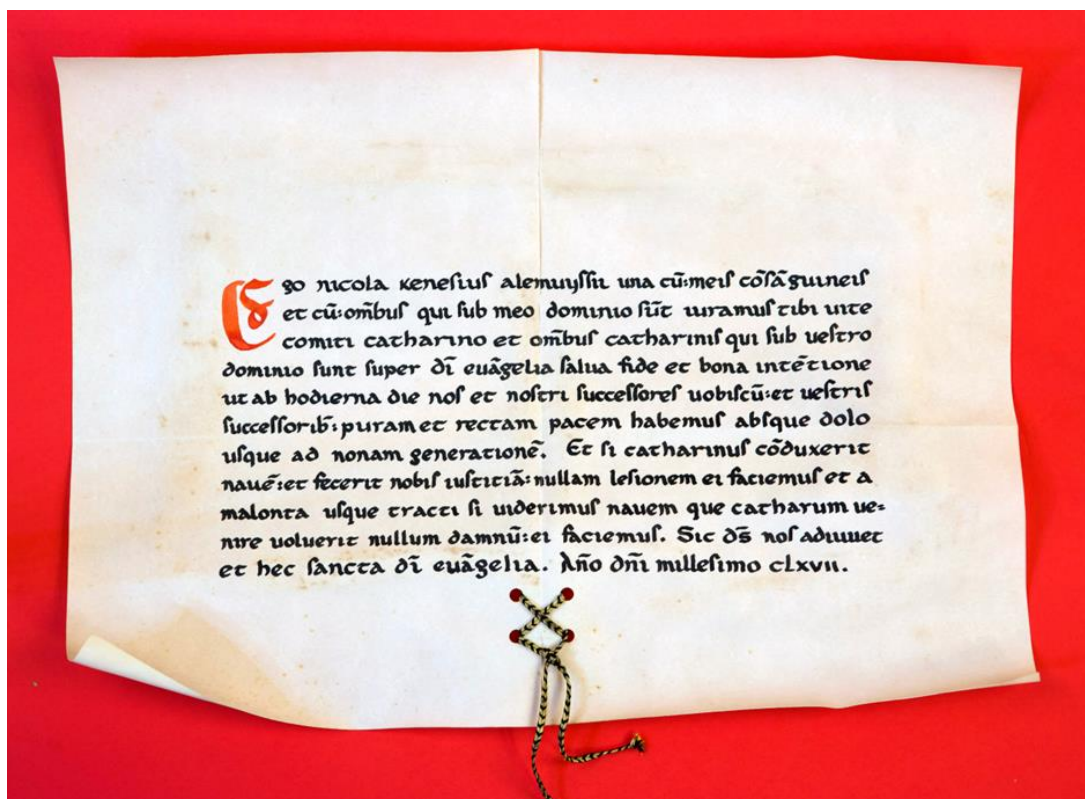 Ego nicola kenesius alemuyssii una cū:meis cōsāguineis
et cū:om̄bus qui sub meo dominio sūt iuramus tibi uite
comiti catharino et om̄bus catharinis qui sub uestro
dominio sunt super dī euāgelia salua fide et bona intētione
ut ab hodierna die nos et nostri successores uobiscū:et uestris
successorib̄:puram et rectam pacem habemus absque dolo
usque ad nonam generationē. Et si catharinus cōduxerit
nauē:et fecerit nobis iustitiā:nullam lesionem ei faciemus et a
malonta usque tracti si uiderimus nauem que catharum ue=
nire uoluerit nullum damnū:ei faciemus. Sic dS̄ nos adiuuet
et hec sancta dī euāgelia. Āño dn̄i millesimo clxvii.